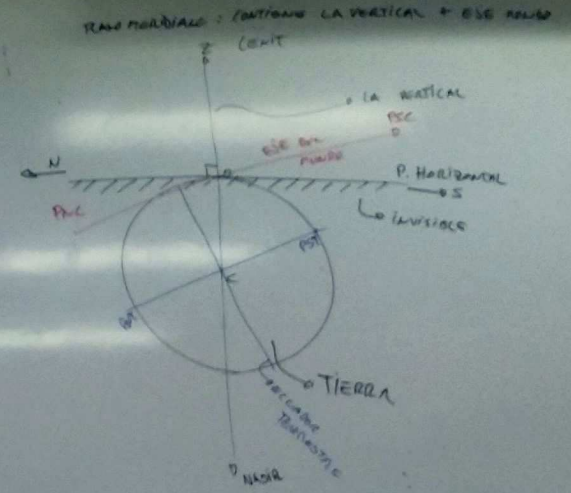 PLANO MERIDIANO : CONTIENE LA VERTICAL + EJE MUNDO
Z
CENIT
LA VERTICAL
PSC
EJE DEL
MUNDO
N
P. HORIZONTAL
S
PNC
INVISIBLE
PST
K
TIERRA
ECUADOR
TERRESTRE
NADIR